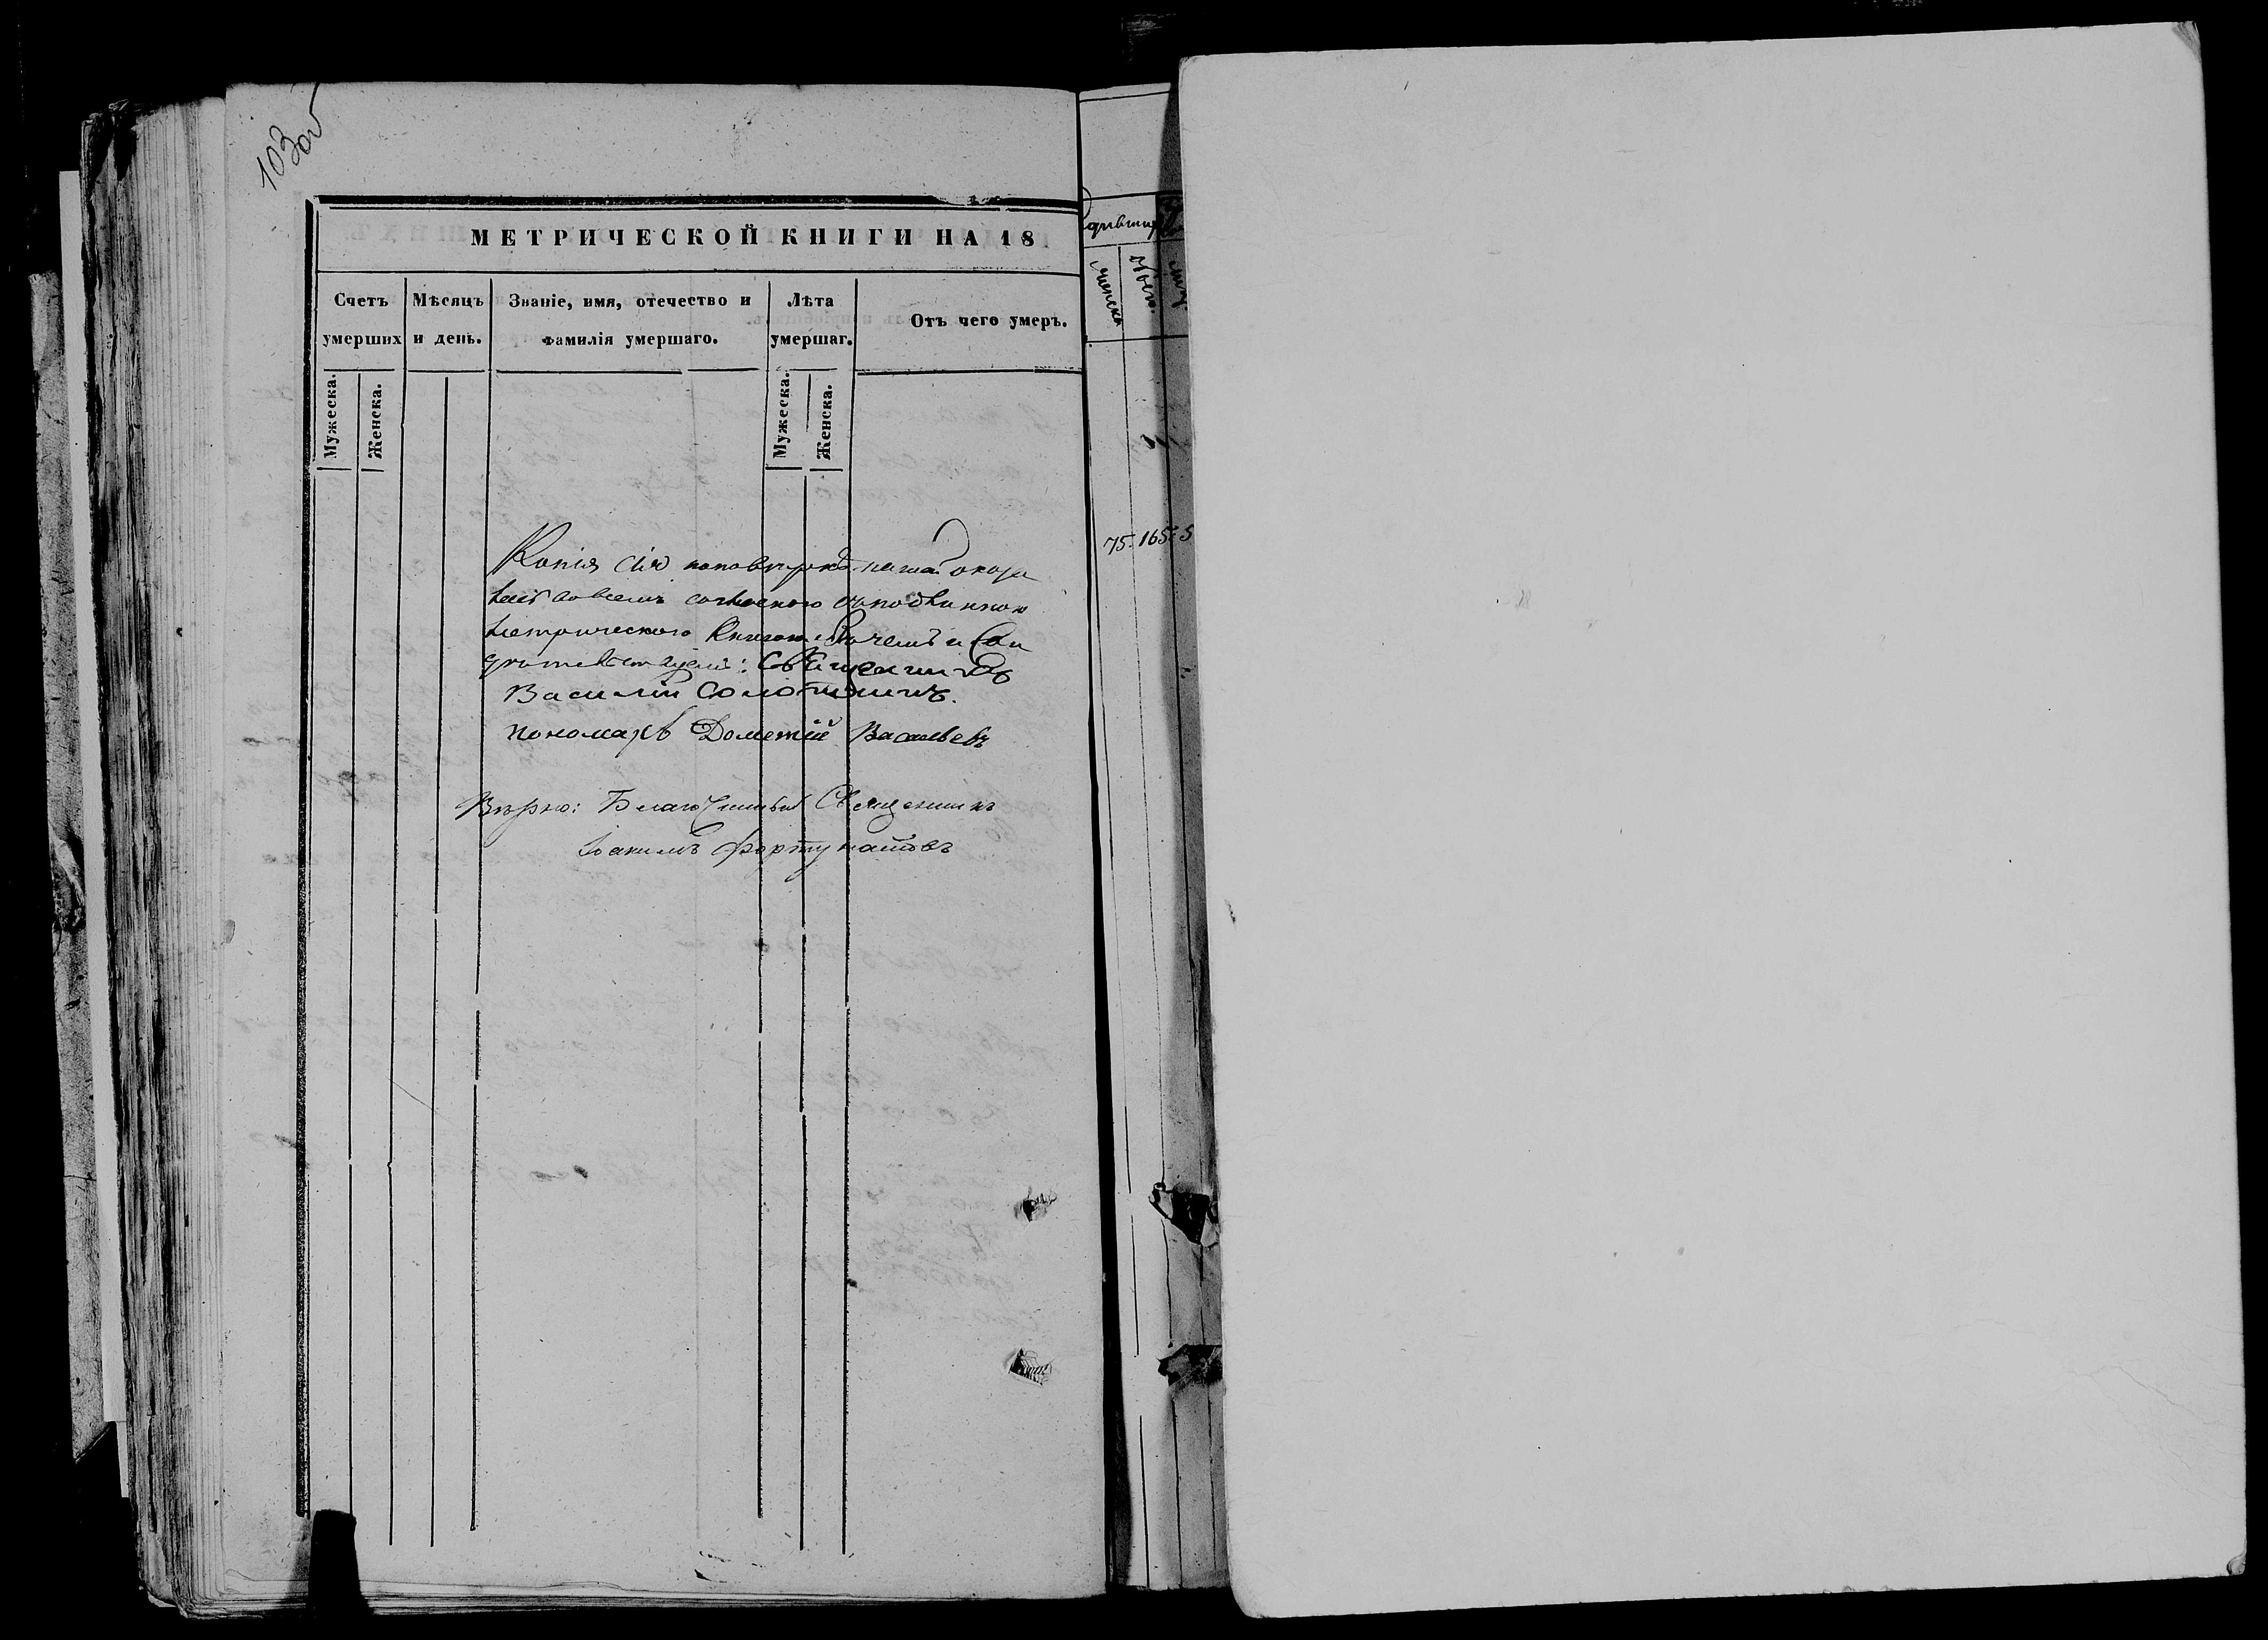 103об
МЕТРИЧЕСКОЙ КНИГИ НА 18
Счетъ умерших
Мѣсяцъ и день.
Званіе, имя, отечество и фамилія умершаго.
Лѣта умершаг.
Отъ чего умеръ.
Мужеска.
Женска.
Мужеска.
Женска.
Копія сія по повѣркѣ нашей оказа
лась во всемъ согласною съ подлинною
метрическою книгою въ чемъ и сви
дѣтельствуемъ: Священникъ
Василій
пономарь Дометій Васильевъ
Вѣрно: Благочинный Священникъ
Іоакимъ Фортунатовъ
женска
обоего
75. 165.